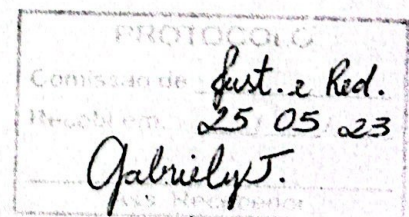 PROTOCOLO
Comissão de Just. e Red.
Recebi em: 25 05 23
Gabriely J.
Ass. Recebedor